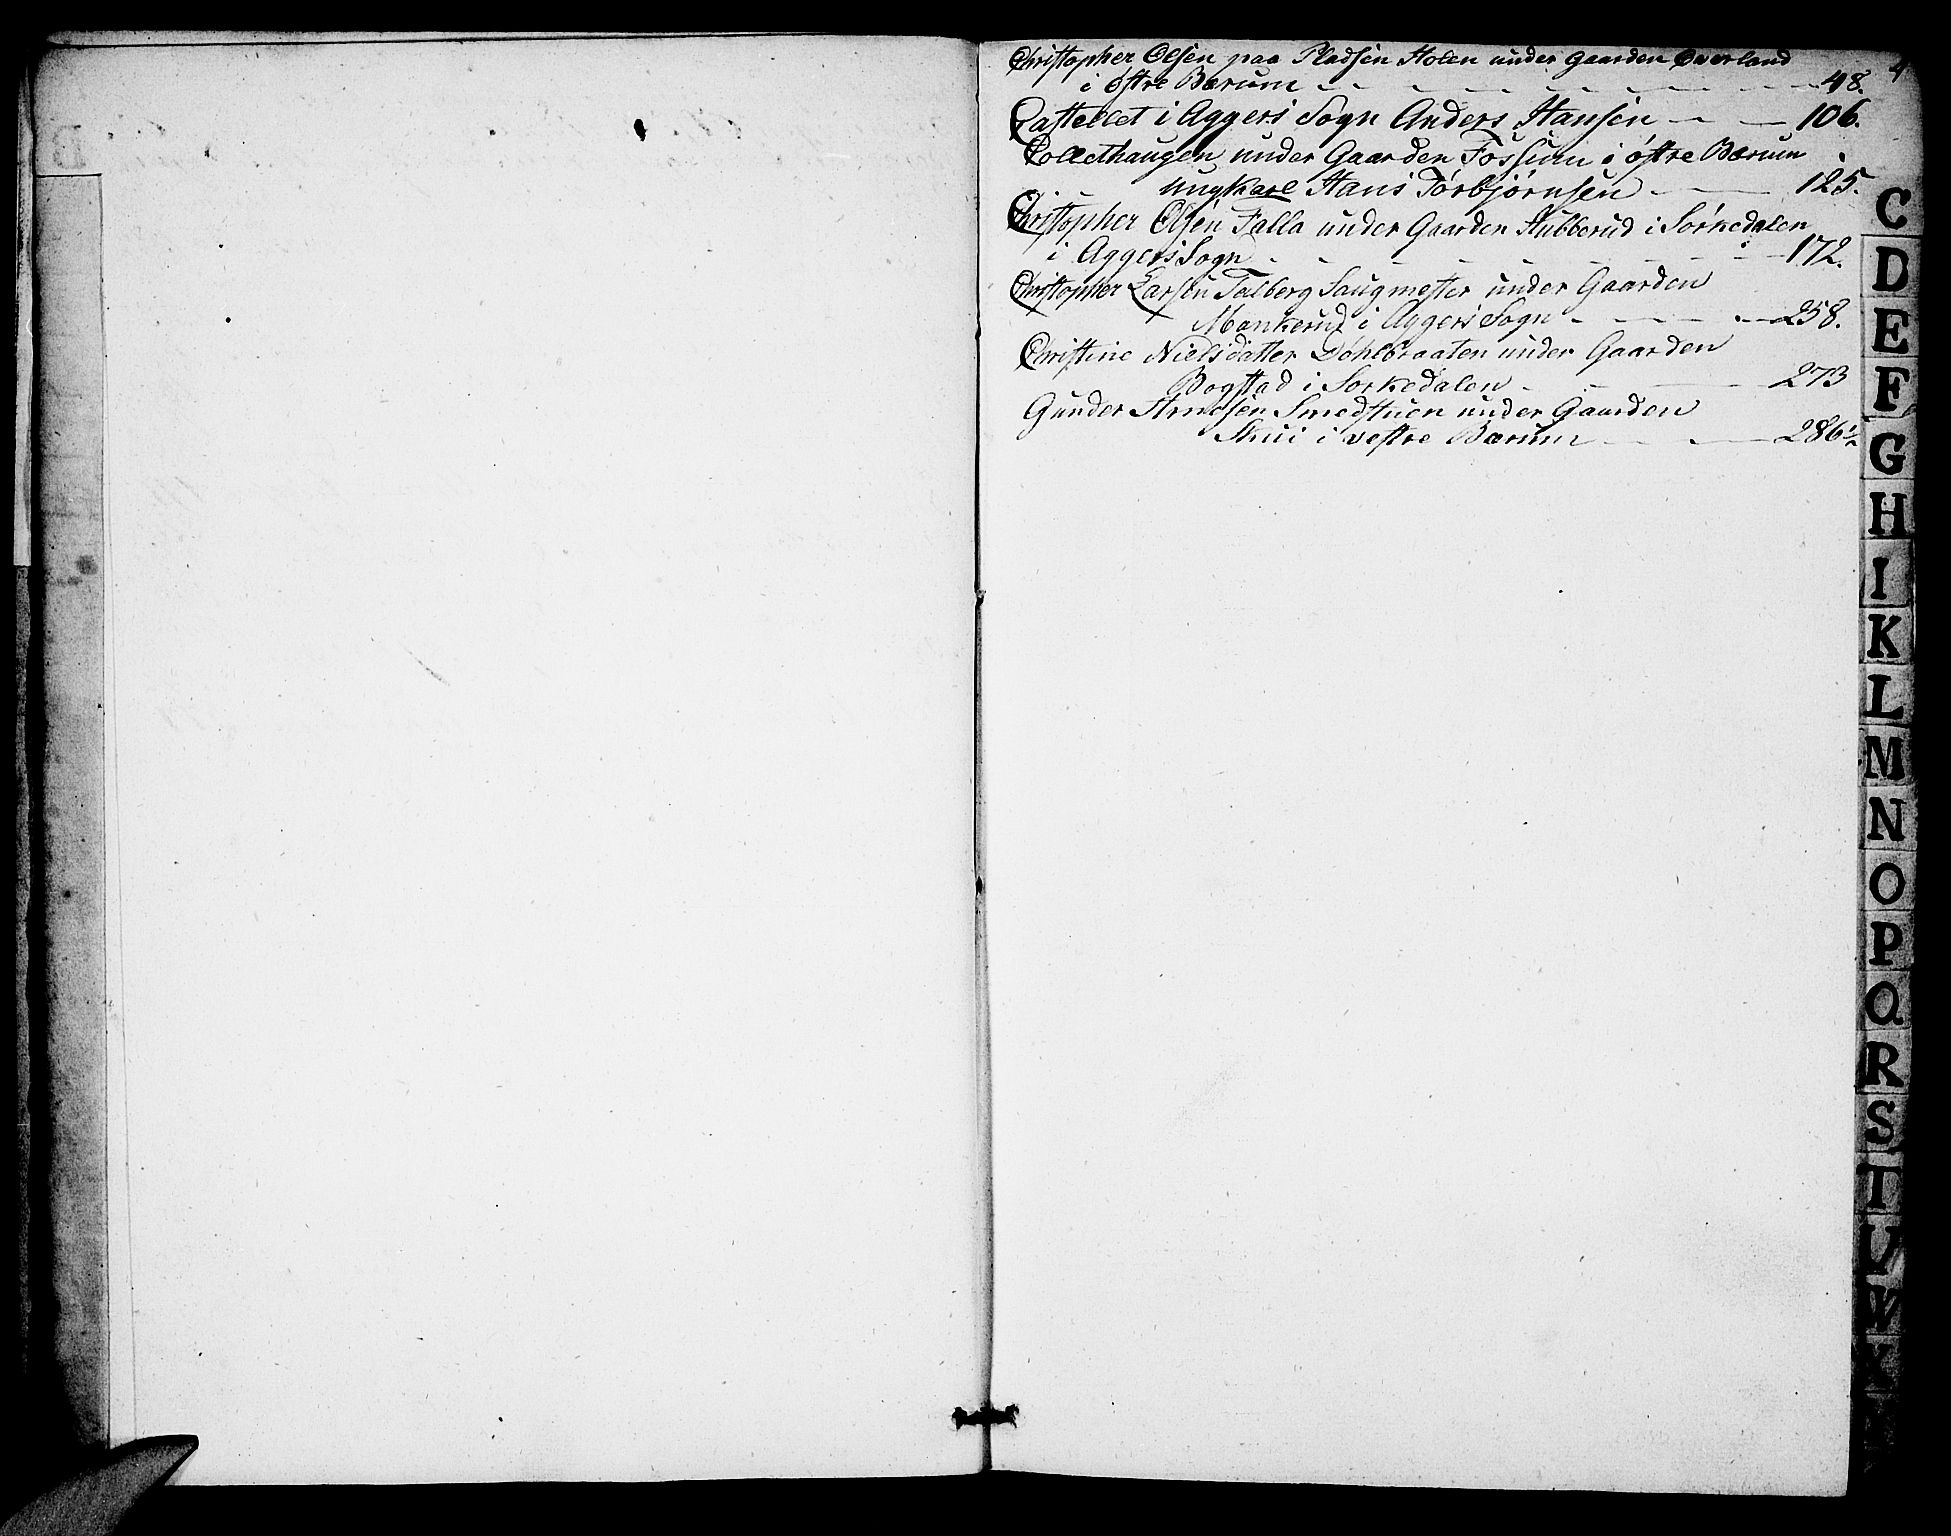 4
Christopher Olsen paa Pladsen Holen under Gaarden Øverland
i østre Bærum 48.
Castellet i Aggers Sogn Anders Hansen 106.
Colletthaugen under Gaarden Fossum i østre Bærum
ungkarl Hans Torbjørnsen 125.
Christopher Olsen Falla under Gaarden Stubberud i Sørkedalen
i Aggers Sogn 172.
Christopher Larsen Talberg Saugmester under Gaarden
Mankerud i Aggers Sogn 258.
Christine Nielsdatter Døhlbraaten under Gaarden
Bogstad i Sorkedalen 273
Gunder Smedstuen under Gaarden
Skui i vestre Bærum 286½
C
D
E
F
G
H
I
K
L
M
N
O
P
Q
R
S
T
V